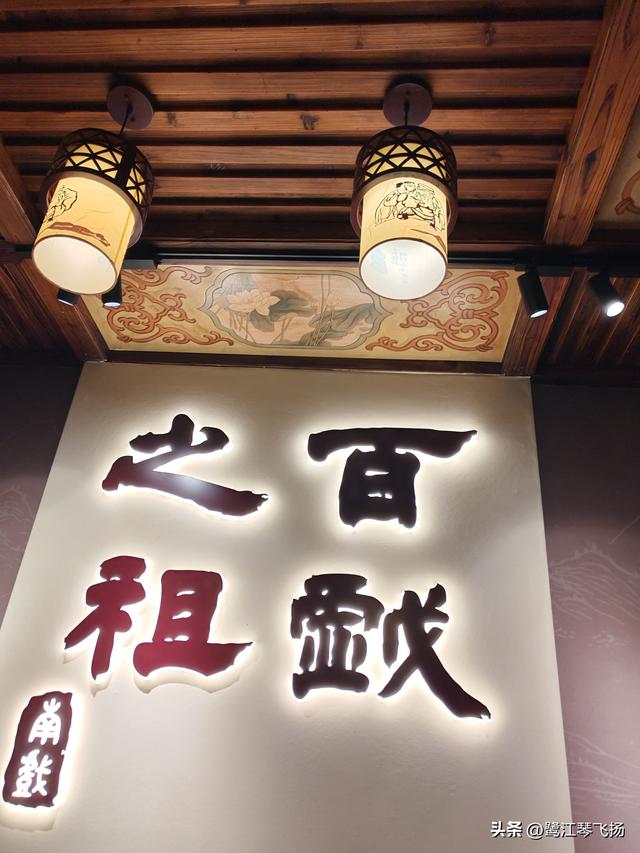 百戲
之祖
南戲
头条 @鹭江琴飞扬